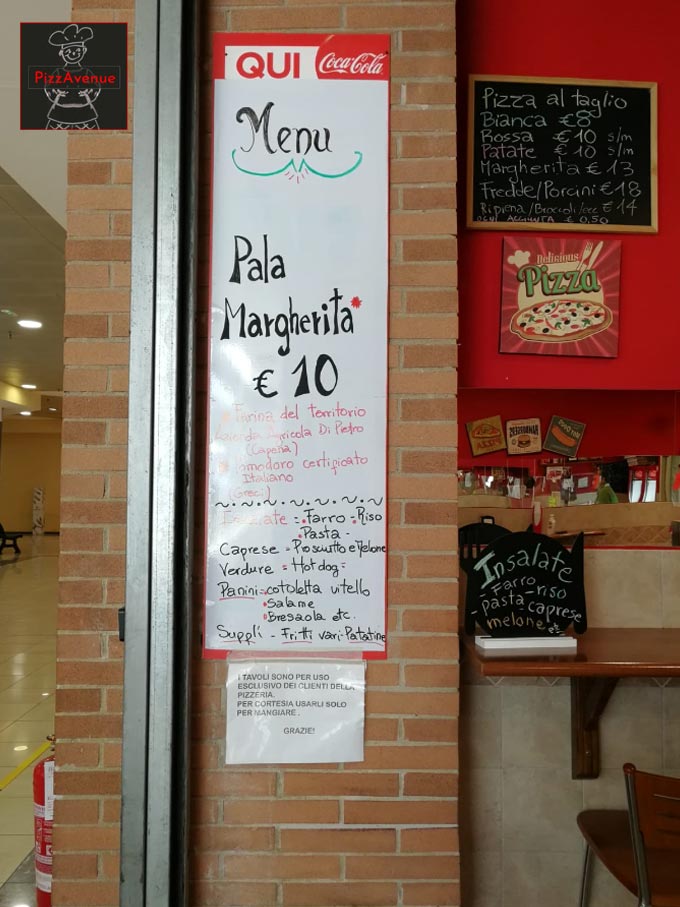 PizzAvenue
QUI Coca-Cola
Menu
Pala
Margherita*
€ 10
Farina del territorio
Azienda Agricola Di Pietro
(Capena)
Pomodoro certificato
Italiano
(Greci)
Insalate = Farro - Riso
Pasta -
Caprese = Prosciutto e Melone
Verdure = Hotdog =
Panini = cotoletta vitello
Salame
Bresaola etc.
Supplì - Fritti vari - Patatine
I TAVOLI SONO PER USO
ESCLUSIVO DEI CLIENTI DELLA
PIZZERIA.
PER CORTESIA USARLI SOLO
PER MANGIARE .
GRAZIE!
Pizza al taglio
Bianca €8
Rossa €10 s/m
Patate €10 s/m
Margherita €13
Fredde/Porcini €18
Ripiena/Broccoli/ecc €14
OGNI AGGIUNTA €0,50
Delicious
Pizza
Insalate
- Farro - riso
- pasta caprese
melone etc